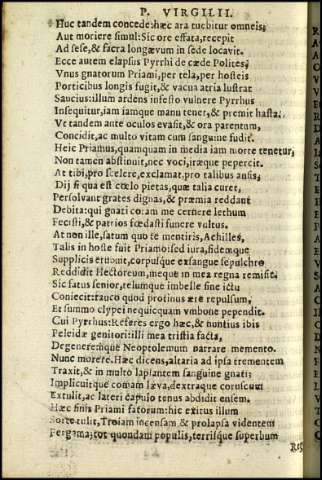 P. VIRGILII.
Huc tandem concede: hæc ara tuebitur omneis,
Aut moriere simul: Sic ore effata, recepit
Ad sese, & sacra longævum in sede locavit.
Ecce autem elapsus Pyrrhi de cæde Polites,
Vnus gnatorum Priami, per tela, per hosteis
Porticibus longis fugit, & vacua atria lustrat
Saucius: illum ardens infesto vulnere Pyrrhus
Insequitur, iam iamque manu tenet, & premit hasta:
Vt tandem ante oculos evasit, & ora parentum,
Concidit, ac multo vitam cum sanguine fudit.
Heic Priamus, quamquam in media iam morte tenetur,
Non tamen abstinuit, nec voci, iræque pepercit.
At tibi, pro scelere, exclamat, pro talibus ausis,
Dij si qua est cœlo pietas, quæ talia curet,
Persolvant grates dignas, & præmia reddant
Debita: qui gnati coram me cernere lethum
Fecisti, & patrios fœdasti funere vultus.
At non ille, satum quo te mentiris, Achilles,
Talis in hoste fuit Priamo: sed iura, fidemque
Supplicis erubuit, corpusque exsangue sepulchro
Reddidit Hectoreum, meque in mea regna remisit.
Sic fatus senior, telumque imbelle sine ictu
Coniecit: rauco quod protinus ære repulsum,
Et summo clypei nequicquam vmbone pependit.
Cui Pyrrhus: Referes ergo hæc, & nuntius ibis
Peleidæ genitori: illi mea tristia facta,
Degeneremque Neoptolemum narrare memento.
Nunc morere. Hæc dicens, altaria ad ipsa trementem
Traxit, & in multo lapsantem sanguine gnati:
Implicuitque comam læva, dextraque coruscum
Extulit, ac lateri capulo tenus abdidit ensem.
Hæc finis Priami fatorum: hic exitus illum
Sorte tulit, Troiam incensam, & prolapsa videntem
Pergama; tot quondam populis, terrisque superbum